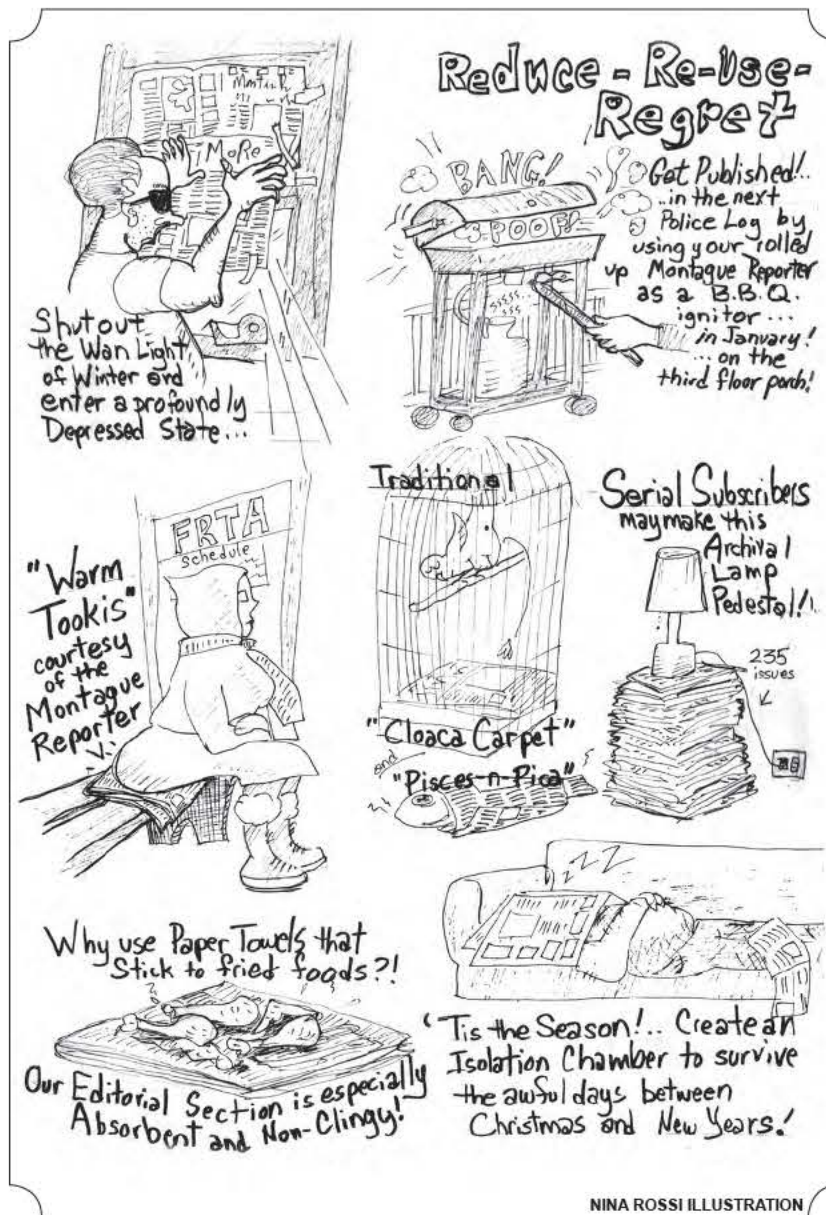 Reduce - Re-Use -
Regret
Montague
MoRe
Shut out
the Wan Light
of Winter and
enter a profoundly
Depressed State...
BANG!
POOF!
ssss...
sss
Get Published!..
..in the next
Police Log by
using your rolled
up Montague Reporter
as a B.B.Q.
ignitor...
in January!
... on the
third floor porch!
FRTA
Schedule
"Warm
Tookis"
courtesy
of the
Montague
Reporter
Traditional
"Cloaca Carpet"
and
"Pisces-n-Pica"
Serial Subscribers
may make this
Archival
Lamp
Pedestal!..
235
issues
Why use Paper Towels that
Stick to fried foods?!
Our Editorial Section is especially
Absorbent and Non-Clingy!
ZZZ
'Tis the Season!.. Create an
Isolation Chamber to survive
the awful days between
Christmas and New Years!
NINA ROSSI ILLUSTRATION